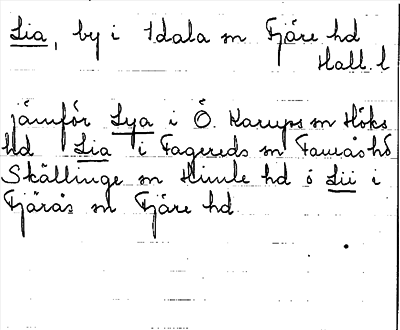 Lia, by i Idala sn Fjäre hd
Hall. l
jämför Lya i Ö. Karups sn Höks
hd Lia i Fagereds sn Faurås hd
Skällinge sn Himle hd o Lii i
Fjärås sn Fjäre hd